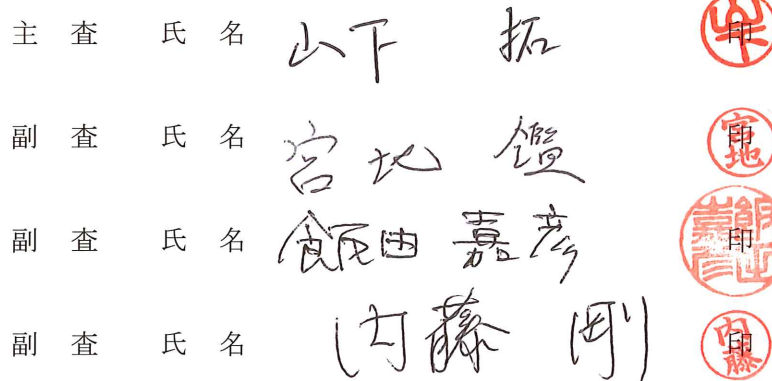 主査 氏名 山下 拓 印
副査 氏名 宮地 鑑 印
副査 氏名 飯田 嘉彦 印
副査 氏名 内藤 剛 印